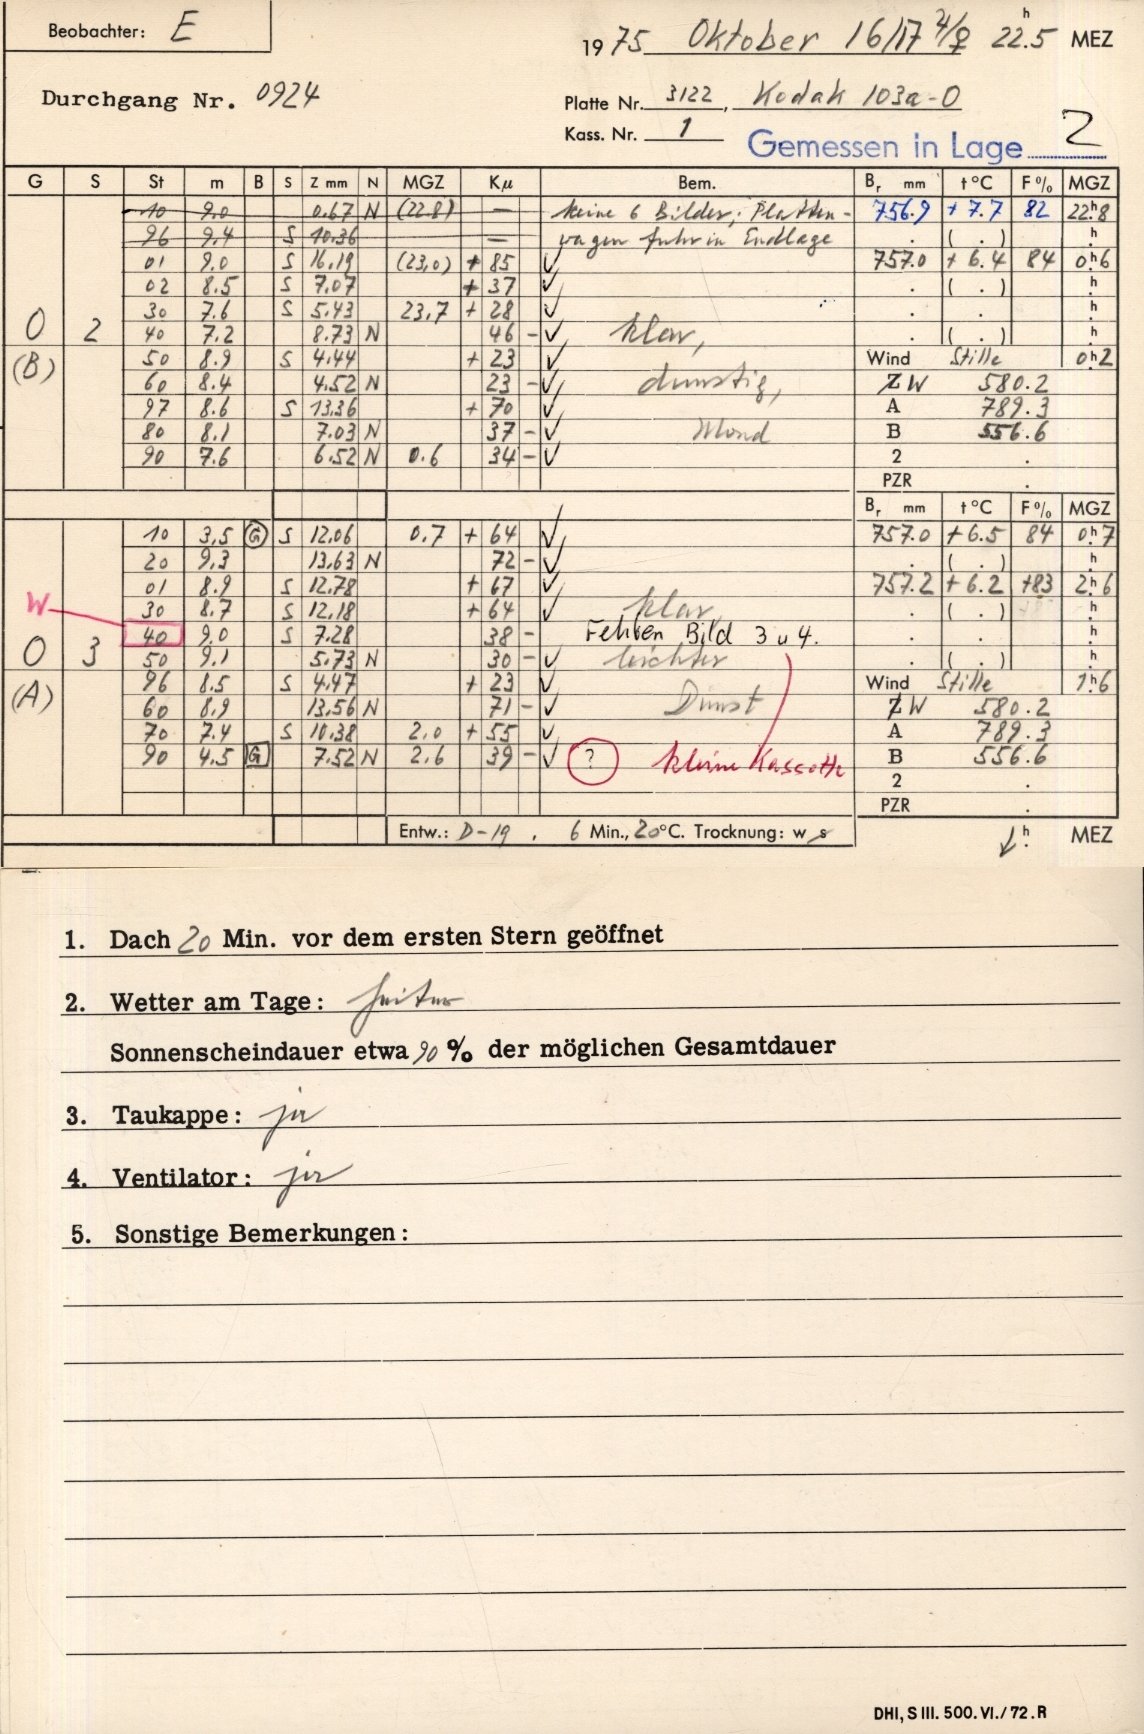 Beobachter: E
1975 Oktober 16/17 ♃/♀ 22h.5 MEZ
Durchgang Nr. 0924
Platte Nr. 3122, Kodak 103a-O
Kass. Nr. 1
Gemessen in Lage 2
G S St m B S Z mm N MGZ Kμ Bem. Br mm t°C F% MGZ
10 9.0 0.67 N (22.8) — keine 6 Bilder; Platten- 756.9 + 7.7 82 22h8
96 9.4 S 10.36 — wagen fuhr in Endlage . ( . ) h.
01 9.0 S 16.19 (23,0) + 85 ✓ 757.0 + 6.4 84 0h6
02 8.5 S 7.07 + 37 ✓ . ( . ) h.
30 7.6 S 5.43 23,7 + 28 ✓ . . h.
0 2 40 7.2 8.73 N 46 - ✓ klar, . ( . ) h.
(B) 50 8.9 S 4.44 + 23 ✓ Wind Stille 0h2
60 8.4 4.52 N 23 - ✓ dunstig, Z W 580.2
97 8.6 S 13.36 + 70 ✓ A 789.3
80 8.1 7.03 N 37 - ✓ Mond B 556.6
90 7.6 6.52 N 0.6 34 - ✓ 2 .
PZR .
Br mm t°C F% MGZ
10 3,5 G S 12.06 0.7 + 64 ✓ 757.0 + 6.5 84 0h7
20 9,3 13,63 N 72 - ✓ . ( . ) h.
01 8.9 S 12.78 + 67 ✓ 757.2 + 6.2 +83 2h6
W 30 8.7 S 12,18 + 64 ✓ klar . ( . ) h.
40 9,0 S 7.28 38 - Fehlen Bild 3 u 4. . . h.
0 3 50 9.1 5.73 N 30 - ✓ leichter . ( . ) h.
(A) 96 8.5 S 4.47 + 23 ✓ Wind Stille 1h6
60 8,9 13,56 N 71 - ✓ Dunst Z W 580.2
70 7.4 S 10.38 2,0 + 55 ✓ A 789.3
90 4.5 G 7.52 N 2.6 39 - ✓ ? kleine Kassette B 556.6
2 .
PZR .
Entw.: D-19 , 6 Min., 20°C. Trocknung: w s h. MEZ
1. Dach 20 Min. vor dem ersten Stern geöffnet
2. Wetter am Tage: heiter
Sonnenscheindauer etwa 90 % der möglichen Gesamtdauer
3. Taukappe: ja
4. Ventilator: ja
5. Sonstige Bemerkungen:
DHI, S III. 500. VI./72. R